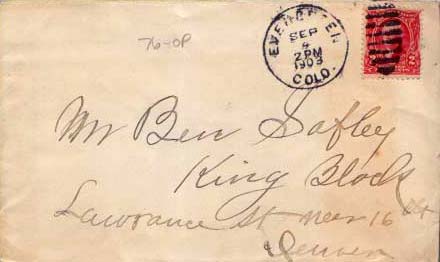 76-OP
EVERGREEN
SEP
4
2 PM
1903
COLO.
2
Mr Ben Safley
King Block
Lawrance St near 16 th
Denver